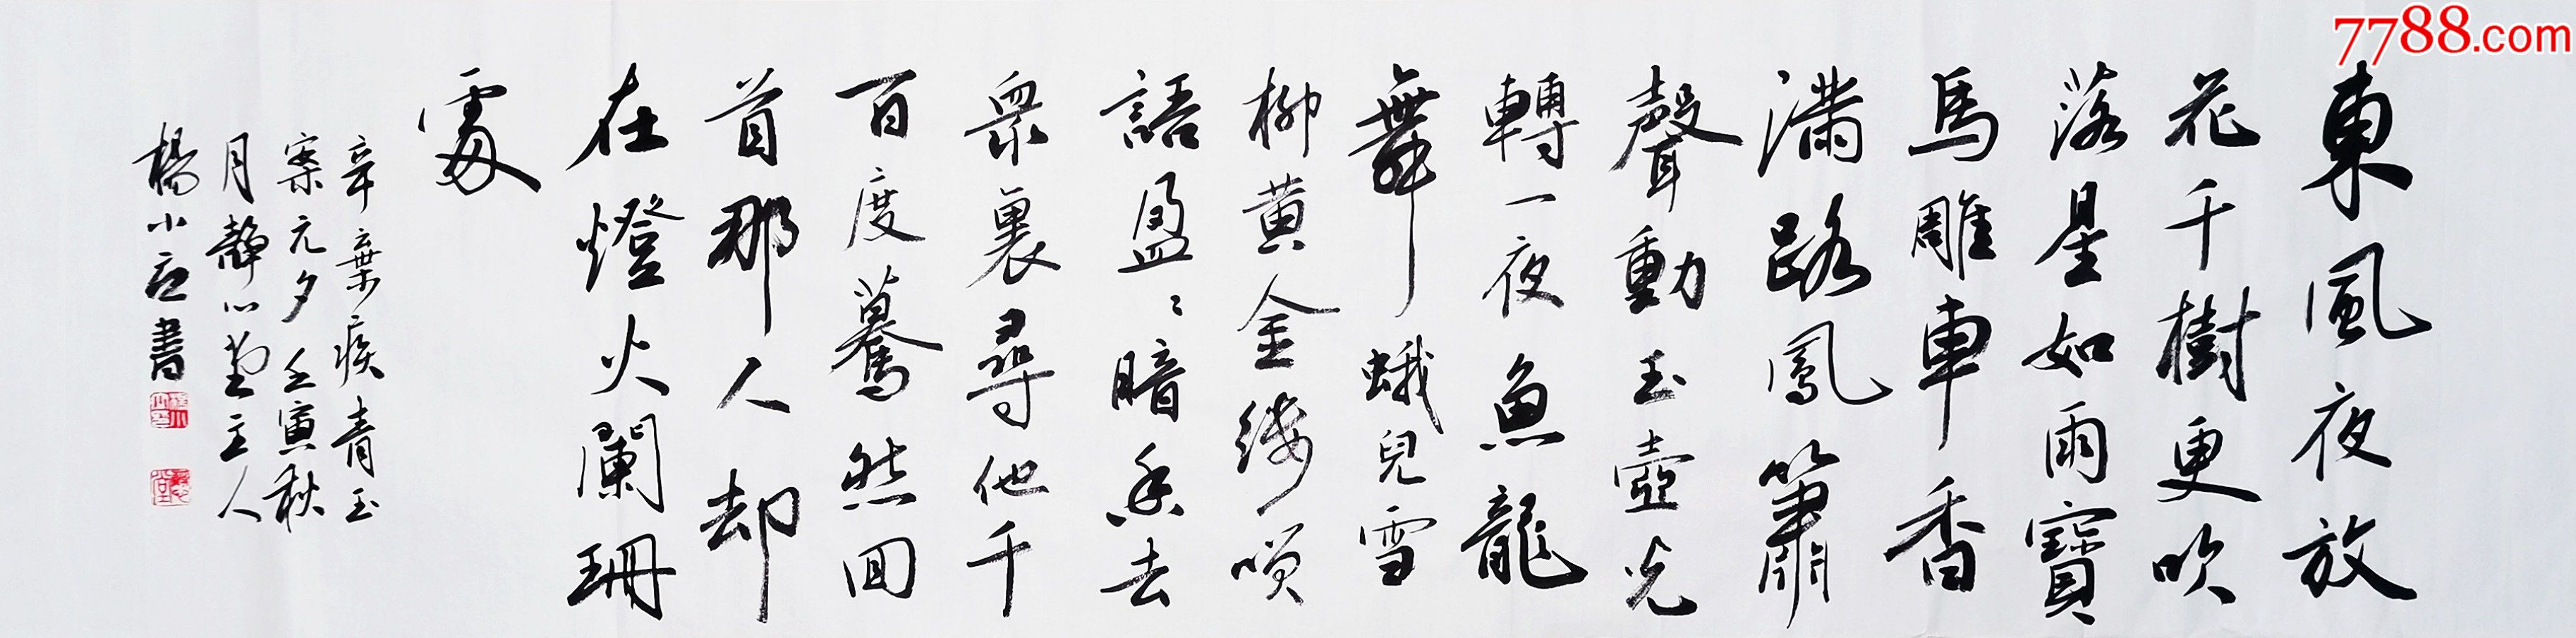 7788.com
東風夜放
花千樹更吹
落星如雨寶
馬雕車香
滿路鳳簫
聲動玉壺光
轉一夜魚龍
舞蛾兒雪
柳黄金縷咲
語盈〻暗香去
衆裏尋他千
百度驀然回
首那人却
在燈火闌珊
處
辛棄疾青玉
案元夕壬寅秋
月静心堂主人
楊小書